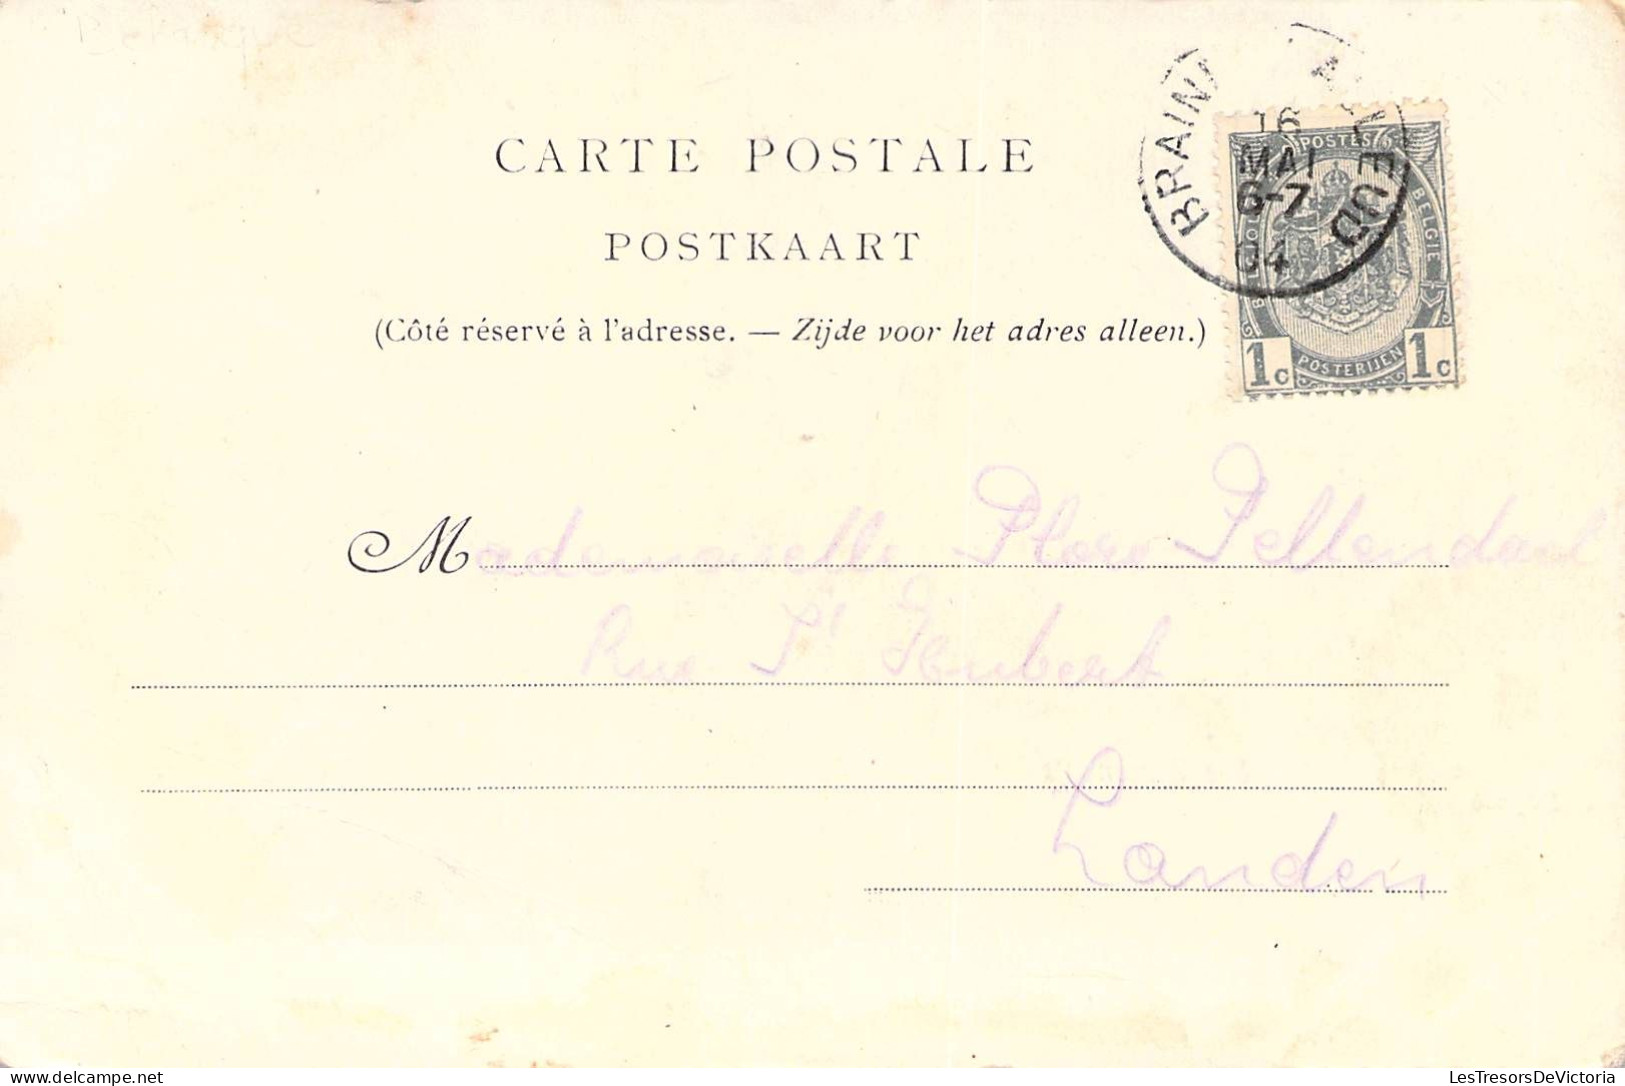 CARTE POSTALE
POSTKAART
(Côté réservé à l'adresse. — Zijde voor het adres alleen.)
BRAIN
16
MAI
6-7
04
POSTES
BELGIE
POSTERIJEN
1c 1c
Mademoiselle Flore Pellendael
Rue St Hubert
Landen
LesTresorsDeVictoria